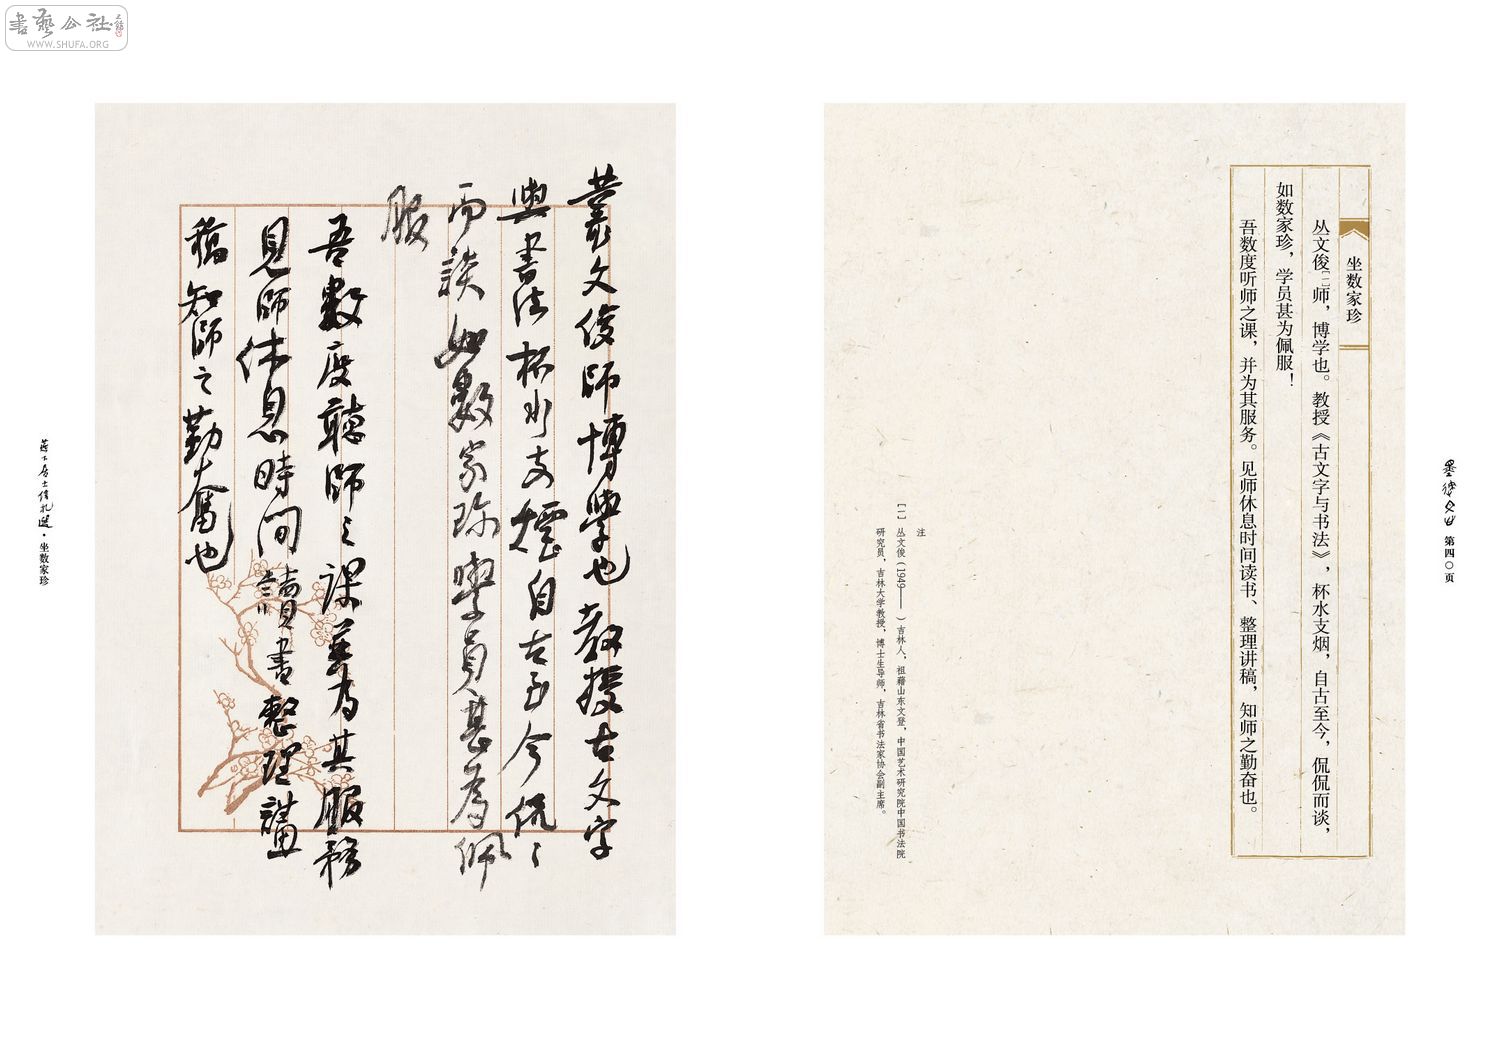 書藝公社
WWW.SHUFA.ORG
坐数家珍
丛文俊〔一〕师，博学也。教授《古文字与书法》，杯水支烟，自古至今，侃侃而谈，
如数家珍，学员甚为佩服！
吾数度听师之课，并为其服务。见师休息时间读书、整理讲稿，知师之勤奋也。
注
〔一〕 丛文俊（1949—— ）吉林人，祖籍山东文登，中国艺术研究院中国书法院
研究员，吉林大学教授，博士生导师，吉林省书法家协会副主席。
第四〇页
叢文俊師博學也教授古文字
與書法杯水支煙自古至今侃〻
而談如數家珍學員甚為佩
服
吾數度聽師之課並為其服務
見師休息時間讀書整理講
稿知師之勤奮也
·坐数家珍